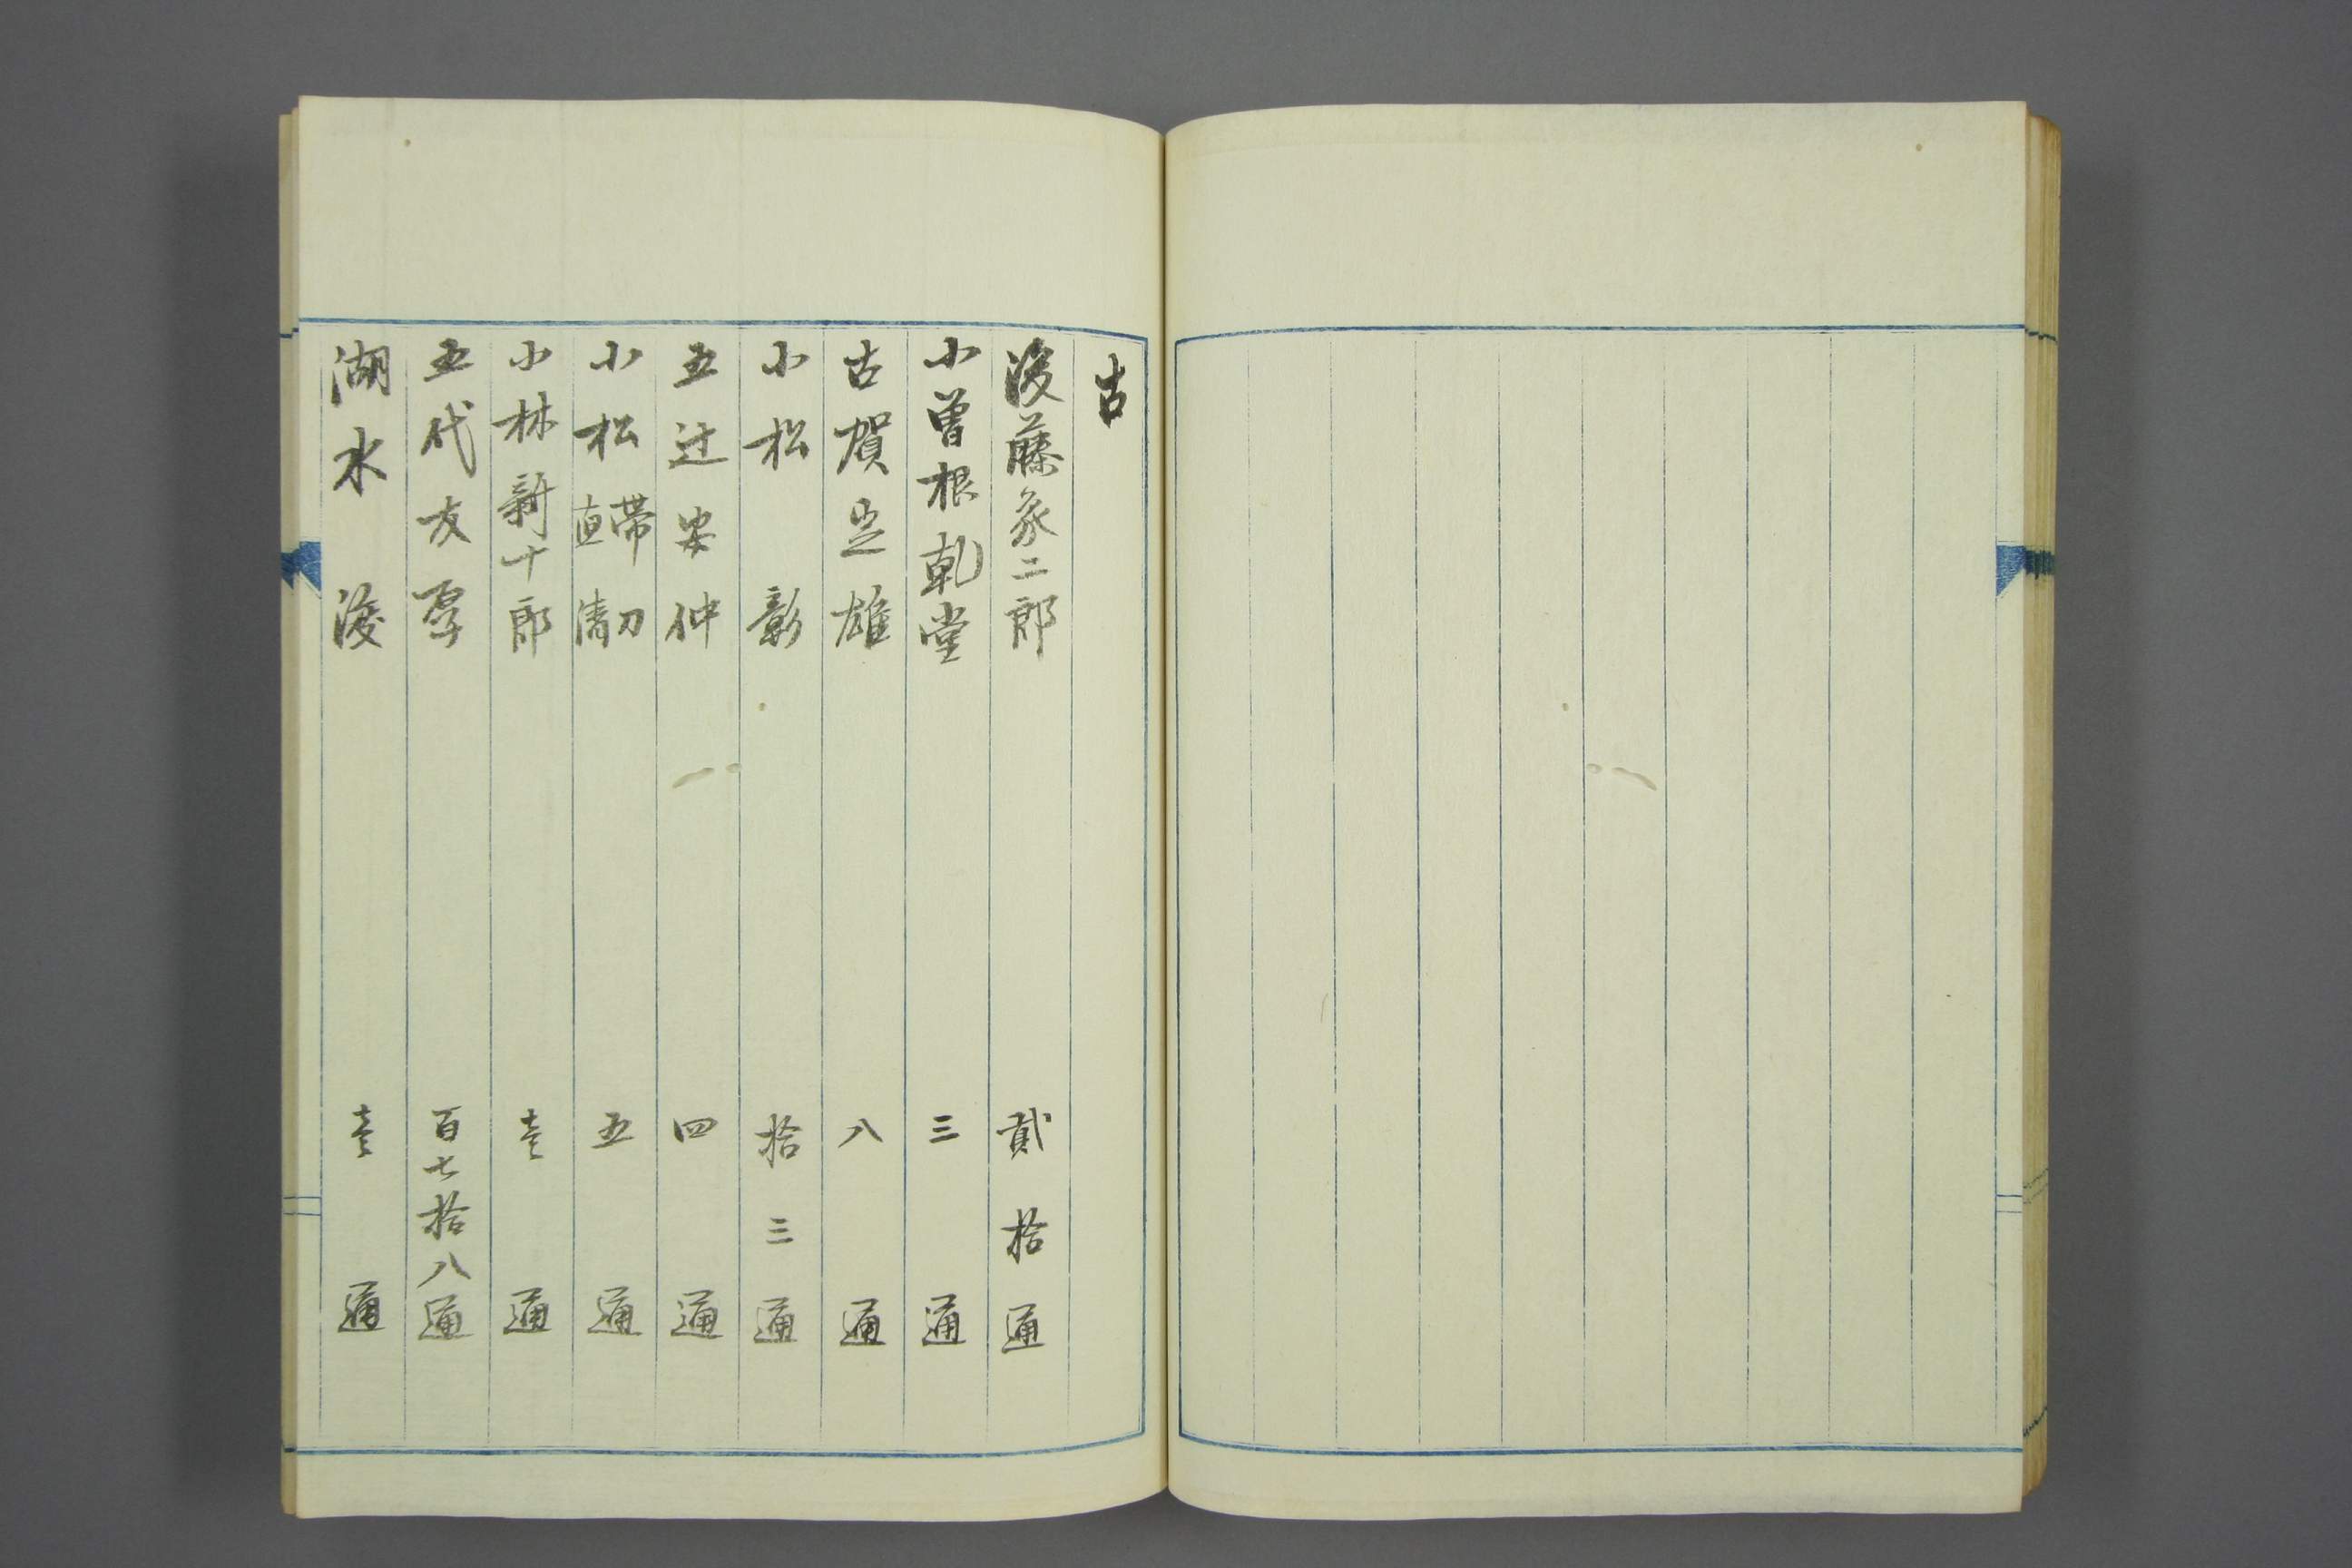 古
後藤象二郎 貳拾通
小曽根乾堂 三通
古賀定雄 八通
小松彰 拾三通
五辻安仲 四通
小松帯刀直清 五通
小林新十郎 壱通
五代友厚 百七拾八通
湖水 壱通